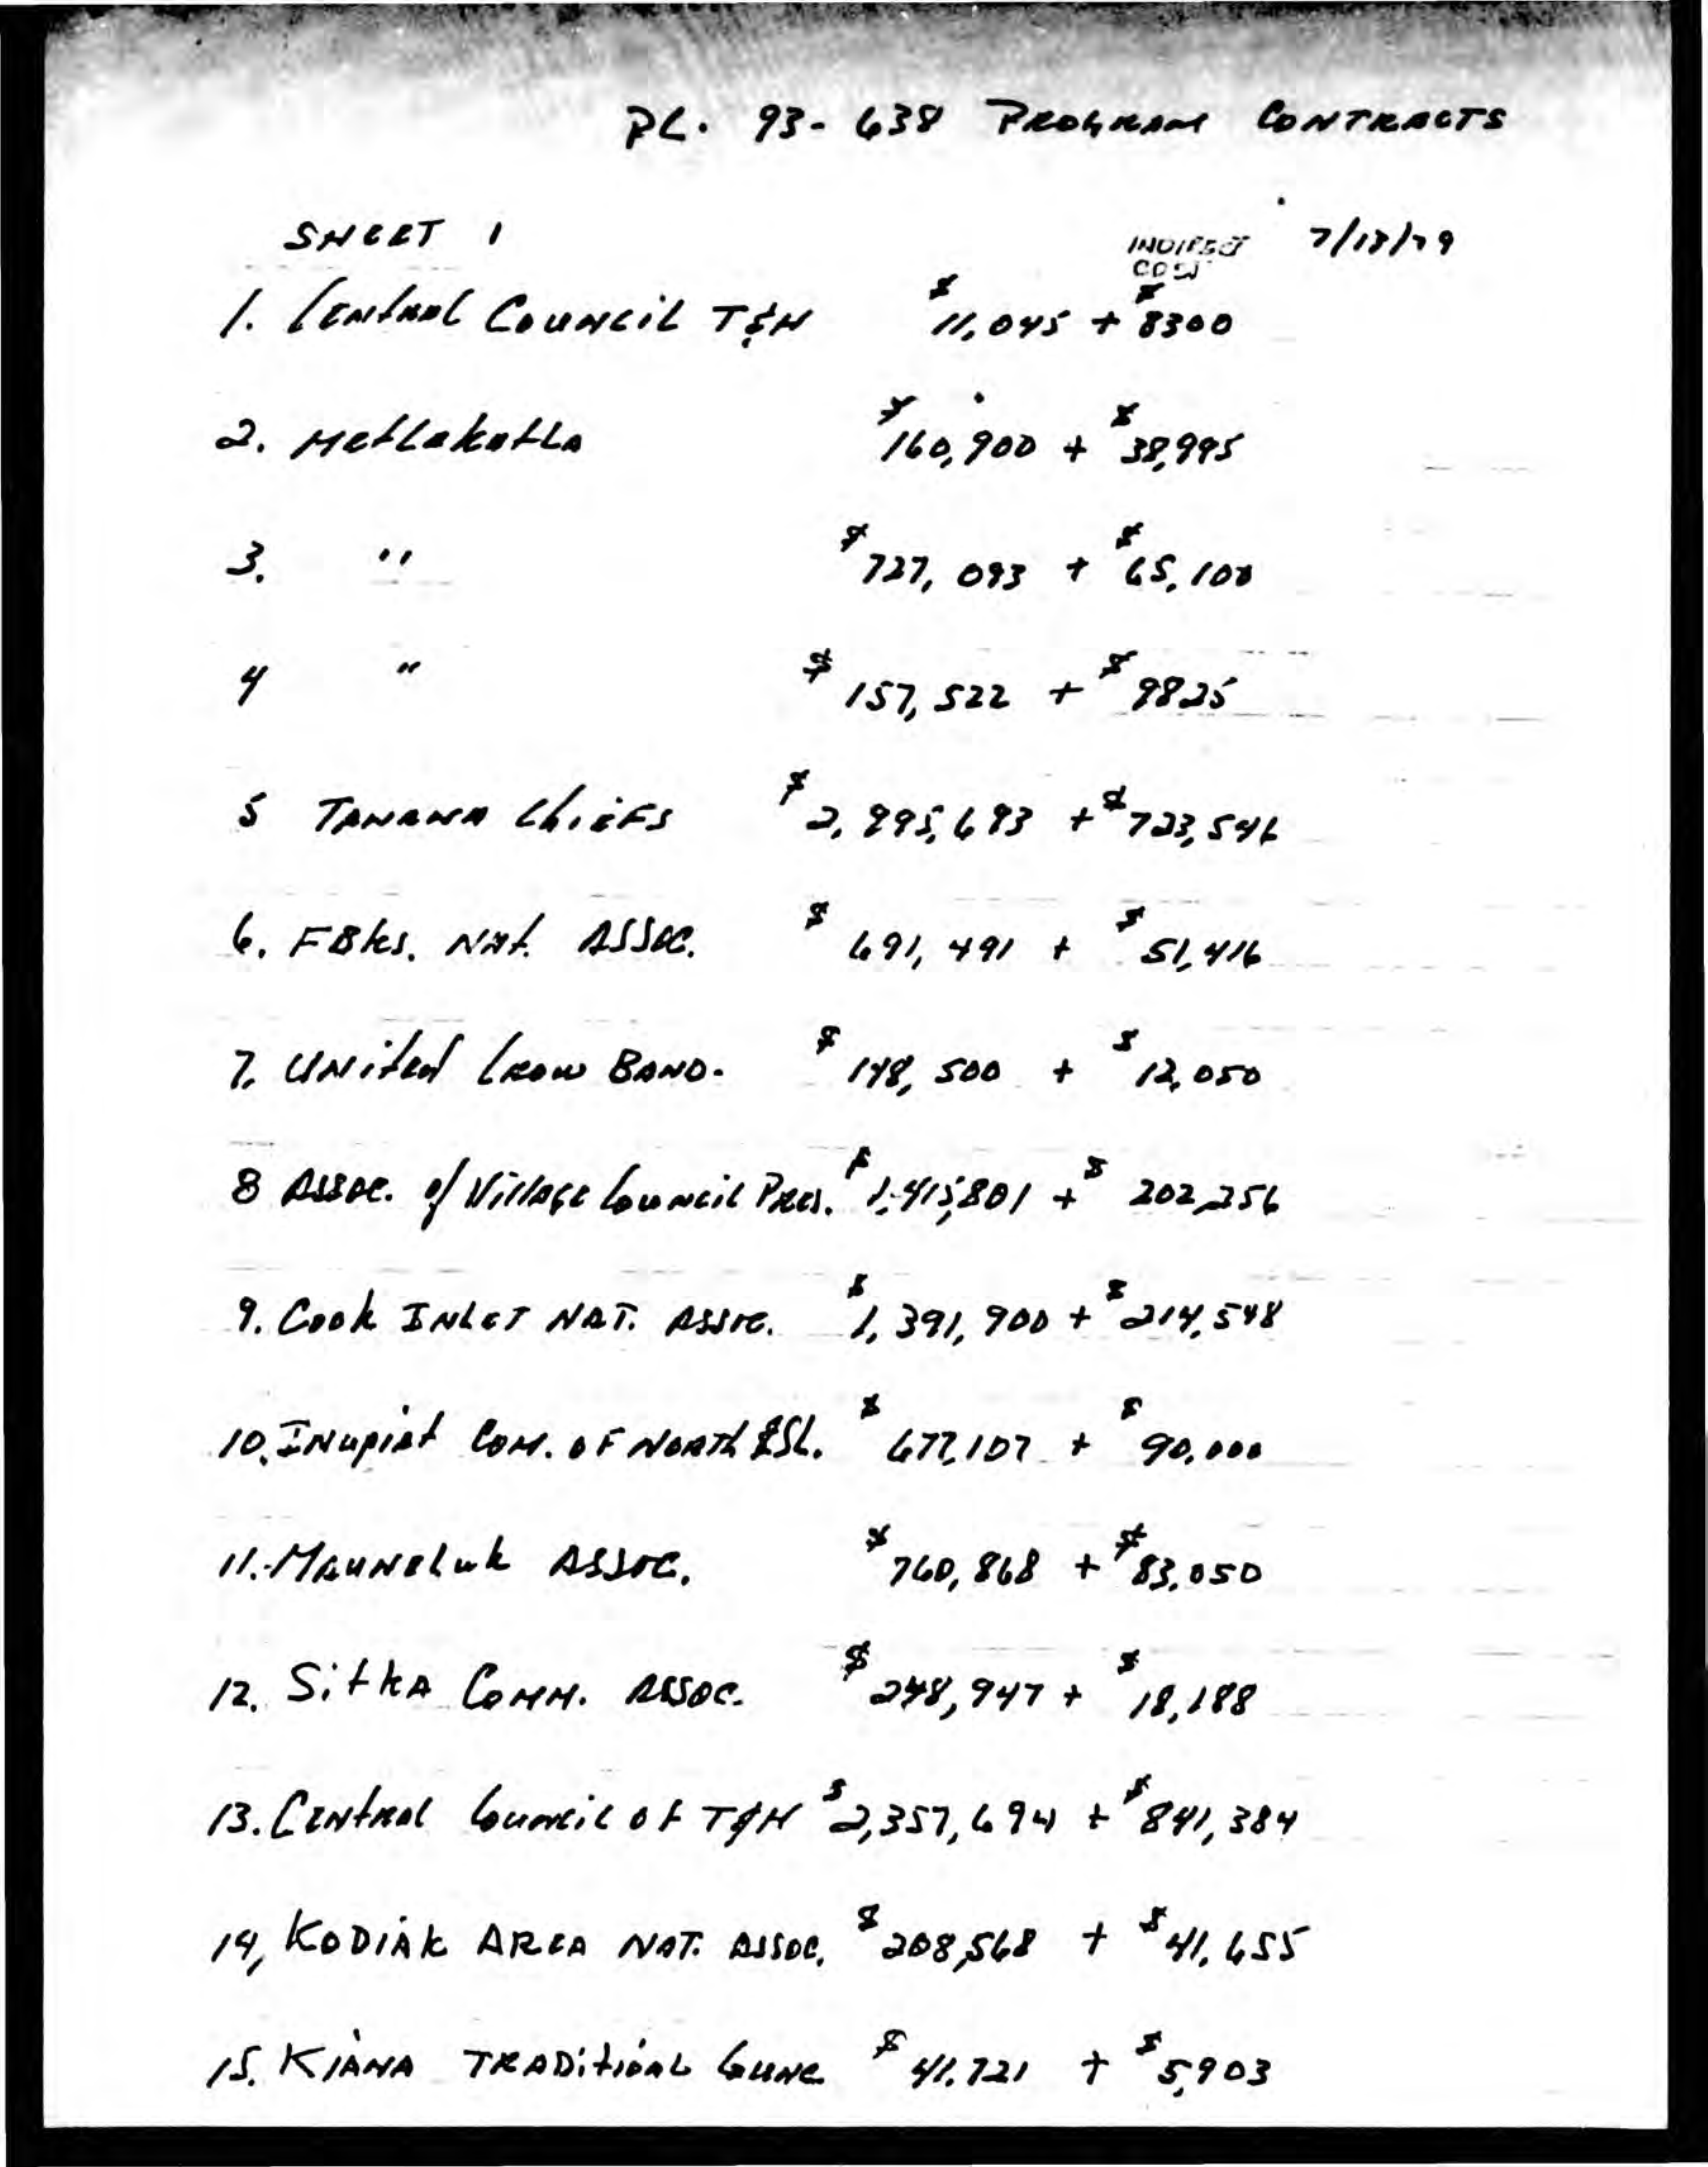 PL. 93-638 PROGRAM CONTRACTS
SHEET 1
INDIRECT 7/13/79
COST
1. Central Council T&H $11,045 + $8300
2. Metlakatla $160,900 + $38,995
3. " $727,093 + $65,100
4 " $157,522 + $9825
5 TANANA Chiefs $2,895,693 + $723,546
6. FBks. Nat. Assoc. $691,491 + $51,416
7. United Crow Band. $148,500 + $12,050
8 Assoc. of Village Council Pres. $1,415,801 + $202,256
9. Cook INLET NAT. Assoc. $1,391,900 + $214,548
10. Inupiat Com. OF NORTH SL. $677,107 + $90,000
11. Mauneluk Assoc. $760,868 + $83,050
12. Sitka Comm. Assoc. $248,947 + $18,188
13. Central Council of T&H $2,357,694 + $841,384
14, KODIAK AREA NAT. ASSOC. $208,568 + $41,655
15. KIANA TRADitionAL Counc $41,721 + $5,903